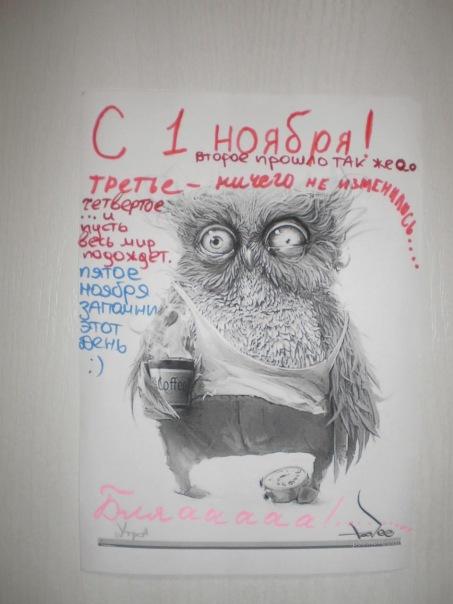 С 1 ноября!
второе прошло так же
третье - ничего не изменилось....
четвертое
... и
пусть
весь мир
подождет.
пятое
ноября
запомни
этот
день
:)
Coffee
Бляааааа!........
Утро